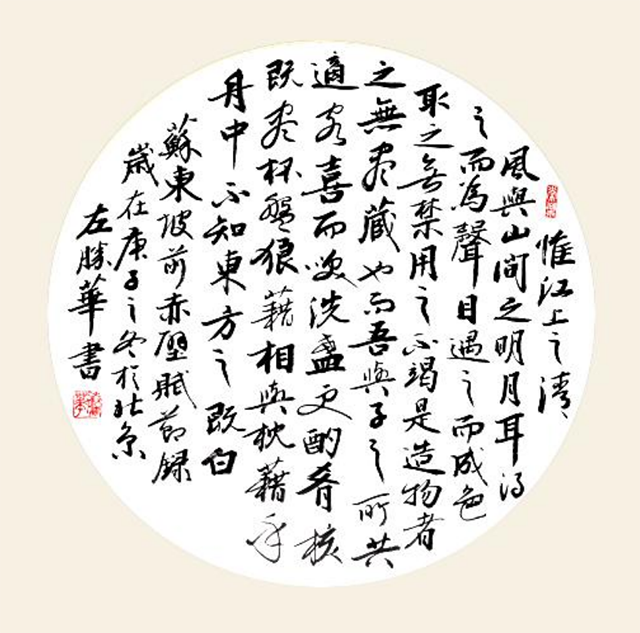 惟江上之清
風與山間之明月耳得
之而為聲目遇之而成色
取之無禁用之不竭是造物者
之無盡藏也而吾與子之所共
適客喜而笑洗盞更酌肴核
既盡杯盤狼藉相與枕藉乎
舟中不知東方之既白
蘇東坡前赤壁賦節錄
歲在庚子之冬於北京
左勝華書